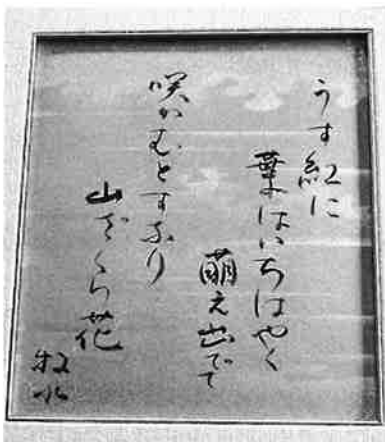 うす紅に
葉はいちはやく
萌え出でて
咲かむとすなり
山ざくら花
牧水